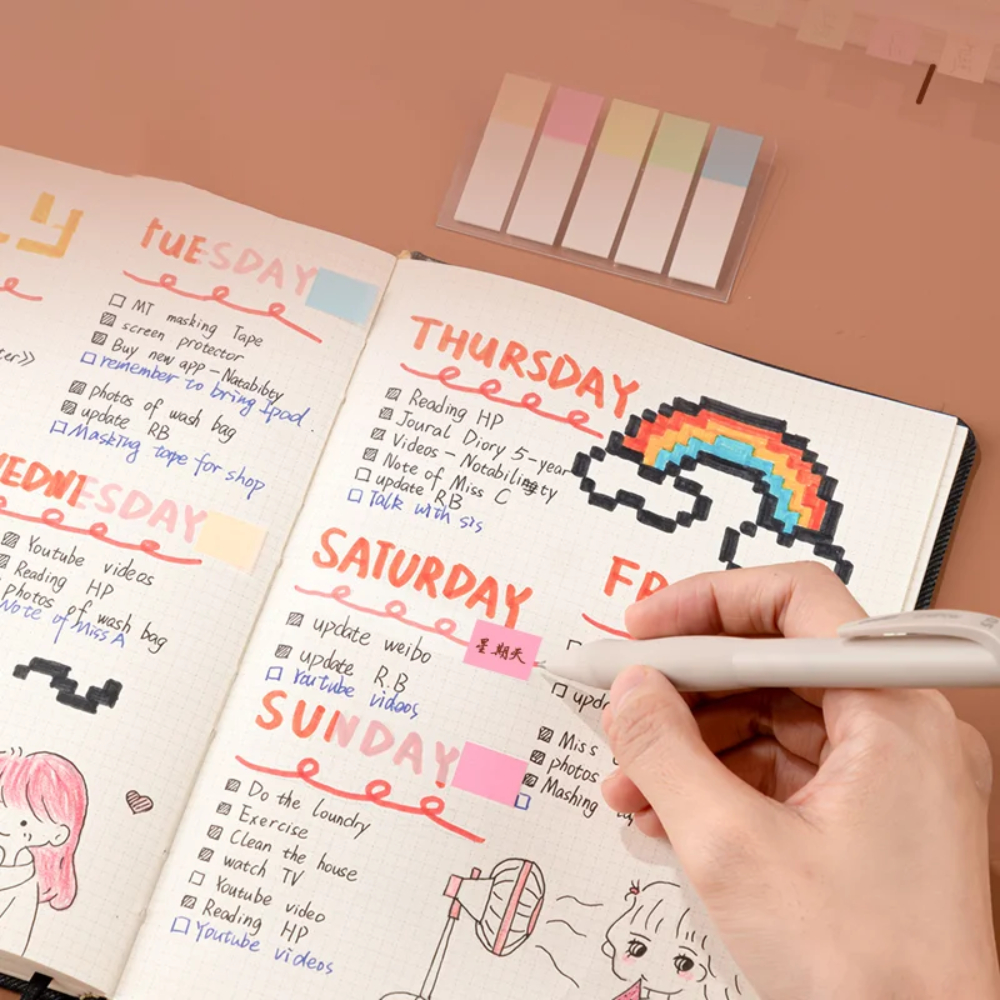 TUESDAY
MT masking Tape
screen protector
Buy new app - Notability
remember to bring Ipad.
photos of wash bag
update RB
Masking tape for shop
WEDNESDAY
Youtube videos
Reading HP
photos of wash bag
Note of Miss A
THURSDAY
Reading HP
Joural Diary 5-year
Videos - Notability
Note of Miss C
update RB
Talk with sis
SATURDAY
update weibo
星期天
update R.B
Youtube videos
SUNDAY
Do the loundry
Exercise
Clean the house
watch TV
Youtube video
Reading HP
Youtube videos
FR
upda
Miss
photos
Mashing